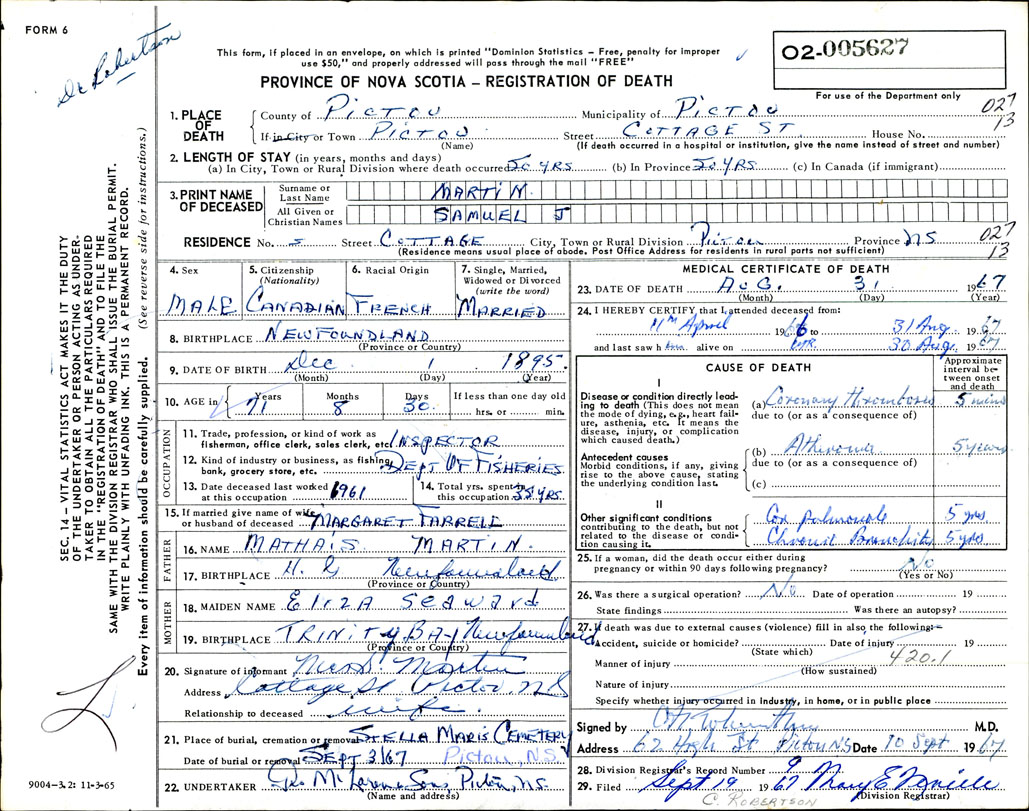 FORM 6
Dr Robertson
This form, if placed in an envelope, on which is printed "Dominion Statistics – Free, penalty for improper
use $50," and properly addressed will pass through the mail "FREE"
PROVINCE OF NOVA SCOTIA – REGISTRATION OF DEATH
O2-005627
For use of the Department only
027
13
1. PLACE OF DEATH
County of PICTOU Municipality of PICTOU
If in City or Town PICTOU Street COTTAGE ST House No.
(Name) (If death occurred in a hospital or institution, give the name instead of street and number)
2. LENGTH OF STAY (in years, months and days)
(a) In City, Town or Rural Division where death occurred 50 YRS (b) In Province 50 YRS (c) In Canada (if immigrant)
3. PRINT NAME OF DECEASED
Surname or Last Name MARTIN
All Given or Christian Names SAMUEL J
RESIDENCE No. 5 Street COTTAGE City, Town or Rural Division PICTOU Province NS
(Residence means usual place of abode. Post Office Address for residents in rural parts not sufficient)
027
13
4. Sex MALE
5. Citizenship (Nationality) CANADIAN
6. Racial Origin FRENCH
7. Single, Married, Widowed or Divorced (write the word) MARRIED
8. BIRTHPLACE NEWFOUNDLAND
(Province or Country)
9. DATE OF BIRTH Dec 1 1895
(Month) (Day) (Year)
10. AGE in Years 71 Months 8 Days 30 If less than one day old
hrs. or min.
OCCUPATION
11. Trade, profession, or kind of work as fisherman, office clerk, sales clerk, etc. INSPECTOR
12. Kind of industry or business, as fishing, bank, grocery store, etc. DEPT OF FISHERIES
13. Date deceased last worked at this occupation 1961
14. Total yrs. spent in this occupation 35 YRS.
15. If married give name of wife or husband of deceased MARGARET FARRELL
FATHER
16. NAME MATHAIS MARTIN.
17. BIRTHPLACE Newfoundland
(Province or Country)
MOTHER
18. MAIDEN NAME ELIZA SEAWARD
19. BIRTHPLACE TRINITY BAY Newfoundland
(Province or Country)
20. Signature of informant Mrs S. Martin
Address Cottage St Pictou, N.S
Relationship to deceased wife.
21. Place of burial, cremation or removal STELLA MARIS CEMETERY
Date of burial or removal SEPT 3/67 Pictou, N.S.
22. UNDERTAKER Sons, Pictou, N.S.
(Name and address)
MEDICAL CERTIFICATE OF DEATH
23. DATE OF DEATH AUG. 31 1967
(Month) (Day) (Year)
24. I HEREBY CERTIFY that I attended deceased from:
11th April 1966 to 31 Aug 1967
and last saw h alive on 30 Aug. 1967
CAUSE OF DEATH
Approximate interval between onset and death
I
Disease or condition directly leading to death (This does not mean the mode of dying, e.g., heart failure, asthenia, etc. It means the disease, injury, or complication which caused death.)
(a) Coronary thrombosis 5 mins
due to (or as a consequence of)
Antecedent causes
Morbid conditions, if any, giving rise to the above cause, stating the underlying condition last.
(b) Atheroma 5 years
due to (or as a consequence of)
(c)
II
Other significant conditions contributing to the death, but not related to the disease or condition causing it.
Cor pulmonale 5 yrs
Chronic Bronchitis 5 yrs
25. If a woman, did the death occur either during pregnancy or within 90 days following pregnancy? No
(Yes or No)
26. Was there a surgical operation? No Date of operation 19
State findings Was there an autopsy?
27. If death was due to external causes (violence) fill in also the following:–
Accident, suicide or homicide? Date of injury 19
(State which)
420.1
Manner of injury
(How sustained)
Nature of injury
Specify whether injury occurred in industry, in home, or in public place
Signed by M.D.
Address 62 High St Pictou NS Date 10 Sept 1967
28. Division Registrar's Record Number 9
29. Filed Sept 19 1967 Mary E
(Division Registrar)
C. ROBERTSON
SEC. 14 – VITAL STATISTICS ACT MAKES IT THE DUTY
OF THE UNDERTAKER OR PERSON ACTING AS UNDER-
TAKER TO OBTAIN ALL THE PARTICULARS REQUIRED
IN THE "REGISTRATION OF DEATH" AND TO FILE THE
SAME WITH THE DIVISION REGISTRAR WHO SHALL ISSUE THE BURIAL PERMIT.
WRITE PLAINLY WITH UNFADING INK. THIS IS A PERMANENT RECORD.
Every item of information should be carefully supplied. (See reverse side for instructions.)
9004-3.2: 11-3-65